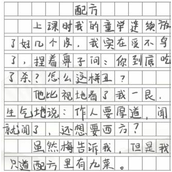 配方
上课时我的童学连续放
了好几个屁，我实在受不了
了，捏着鼻子问：你到底吃
了啥？怎么这样臭？
他比视地看了我一眼，
生气地说：作人要厚道，闻
就闻了，还想要西方？
虽然他告诉我，但是我
只道配方里有九菜。